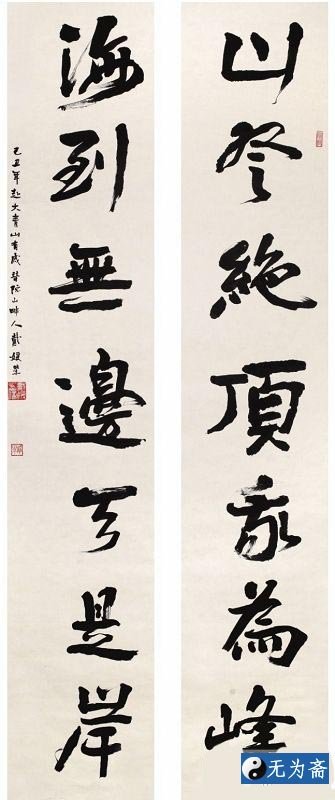 山登絶頂我為峰
海到無邊天是岸
己丑年赴大青山有感 山畔人戴
无为斋